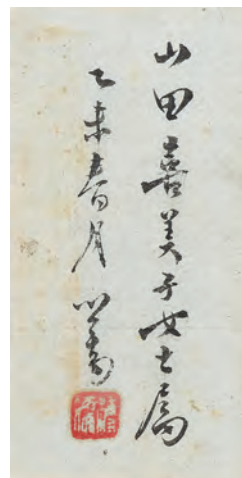 山田喜美子女士属
乙未春月 心畬